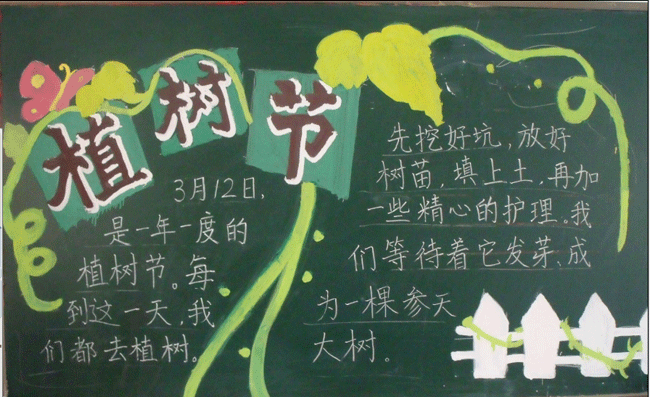 植树节
3月12日,
是一年一度的
植树节。每
到这一天,我
们都去植树。
先挖好坑,放好
树苗,填上土,再加
一些精心的护理。我
们等待着它发芽、成
为一棵参天
大树。